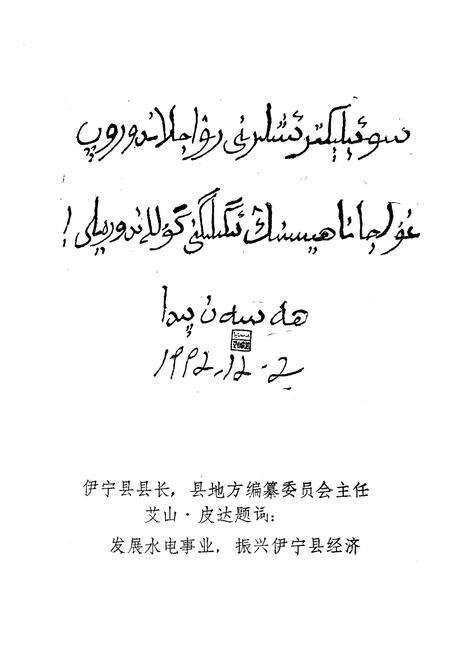 سو ئېلېكتر ئىشلىرنى رىۋاجلاندوروپ
غۇلجا ناھىيىسىنىڭ ئىگىلىگىنى گۈللەندورەيلى !
ھەسەن پىدا
1992.12.2
伊宁县县长，县地方编纂委员会主任
艾山·皮达题词：
发展水电事业，振兴伊宁县经济